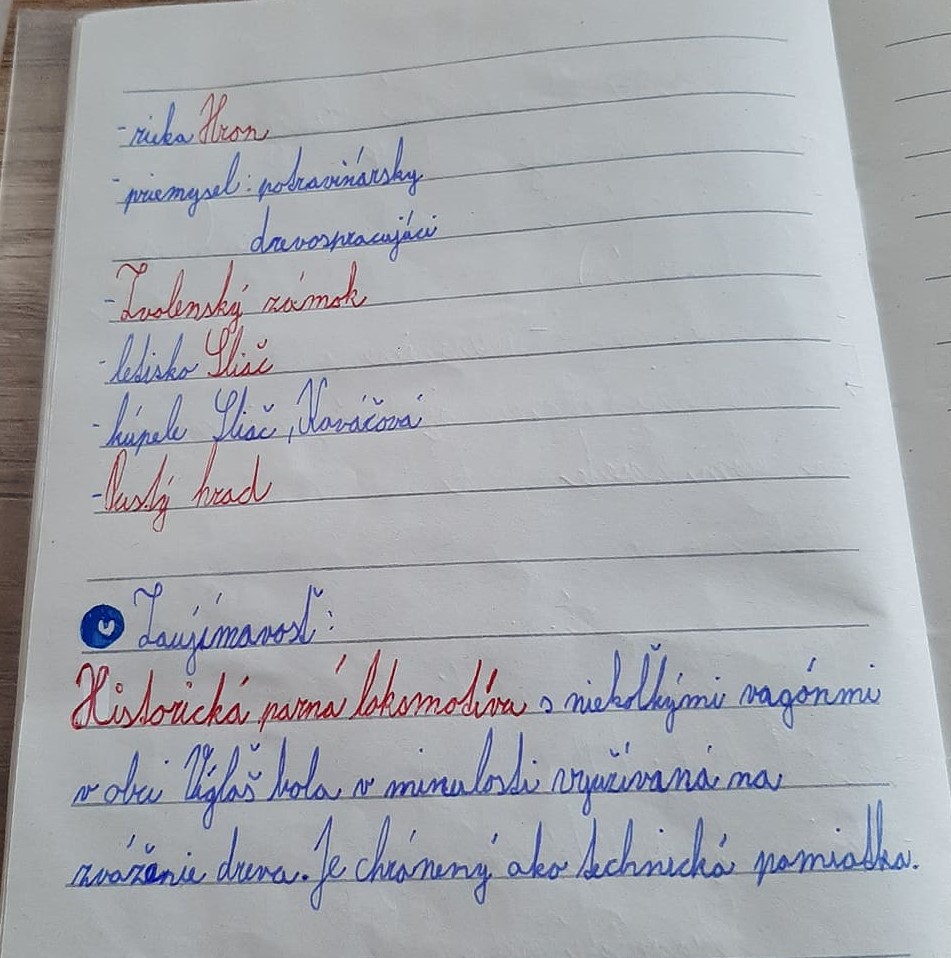 - rieka Hron
- priemysel: potravinársky
drevospracujúci
- Zvolenský zámok
- letisko Sliač
- kúpele Sliač, Kováčová
- Pustý hrad
Zaujímavosť:
Historická parná lokomotíva s niekoľkými vagónmi
v obci Vígľaš bola v minulosti využívaná na
zvážanie dreva. Je chránený ako technická pamiatka.